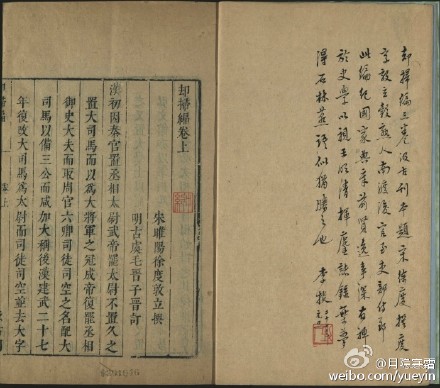 却掃編三卷汲古刊本題宋徐度撰度
字敦立穀熟人南渡後官至吏部侍郎
此編紀國家典章前賢逸事深有裨
於史學以視王明清揮麈諸錄
得石林燕語似猶勝之也 李
却掃編卷上
宋睢陽徐度敦立撰
明古虞毛晉子晉訂
漢初因秦官置丞相太尉武帝罷太尉不置久之
置大司馬以爲大將軍之冠成帝復罷丞相
御史大夫而取周官六卿司徒司空之名配大
司馬以備三公而咸加大稱後漢建武二十七
年復改大司馬爲太尉而司徒司空並去大字
卷上
weibo.com/yueyin